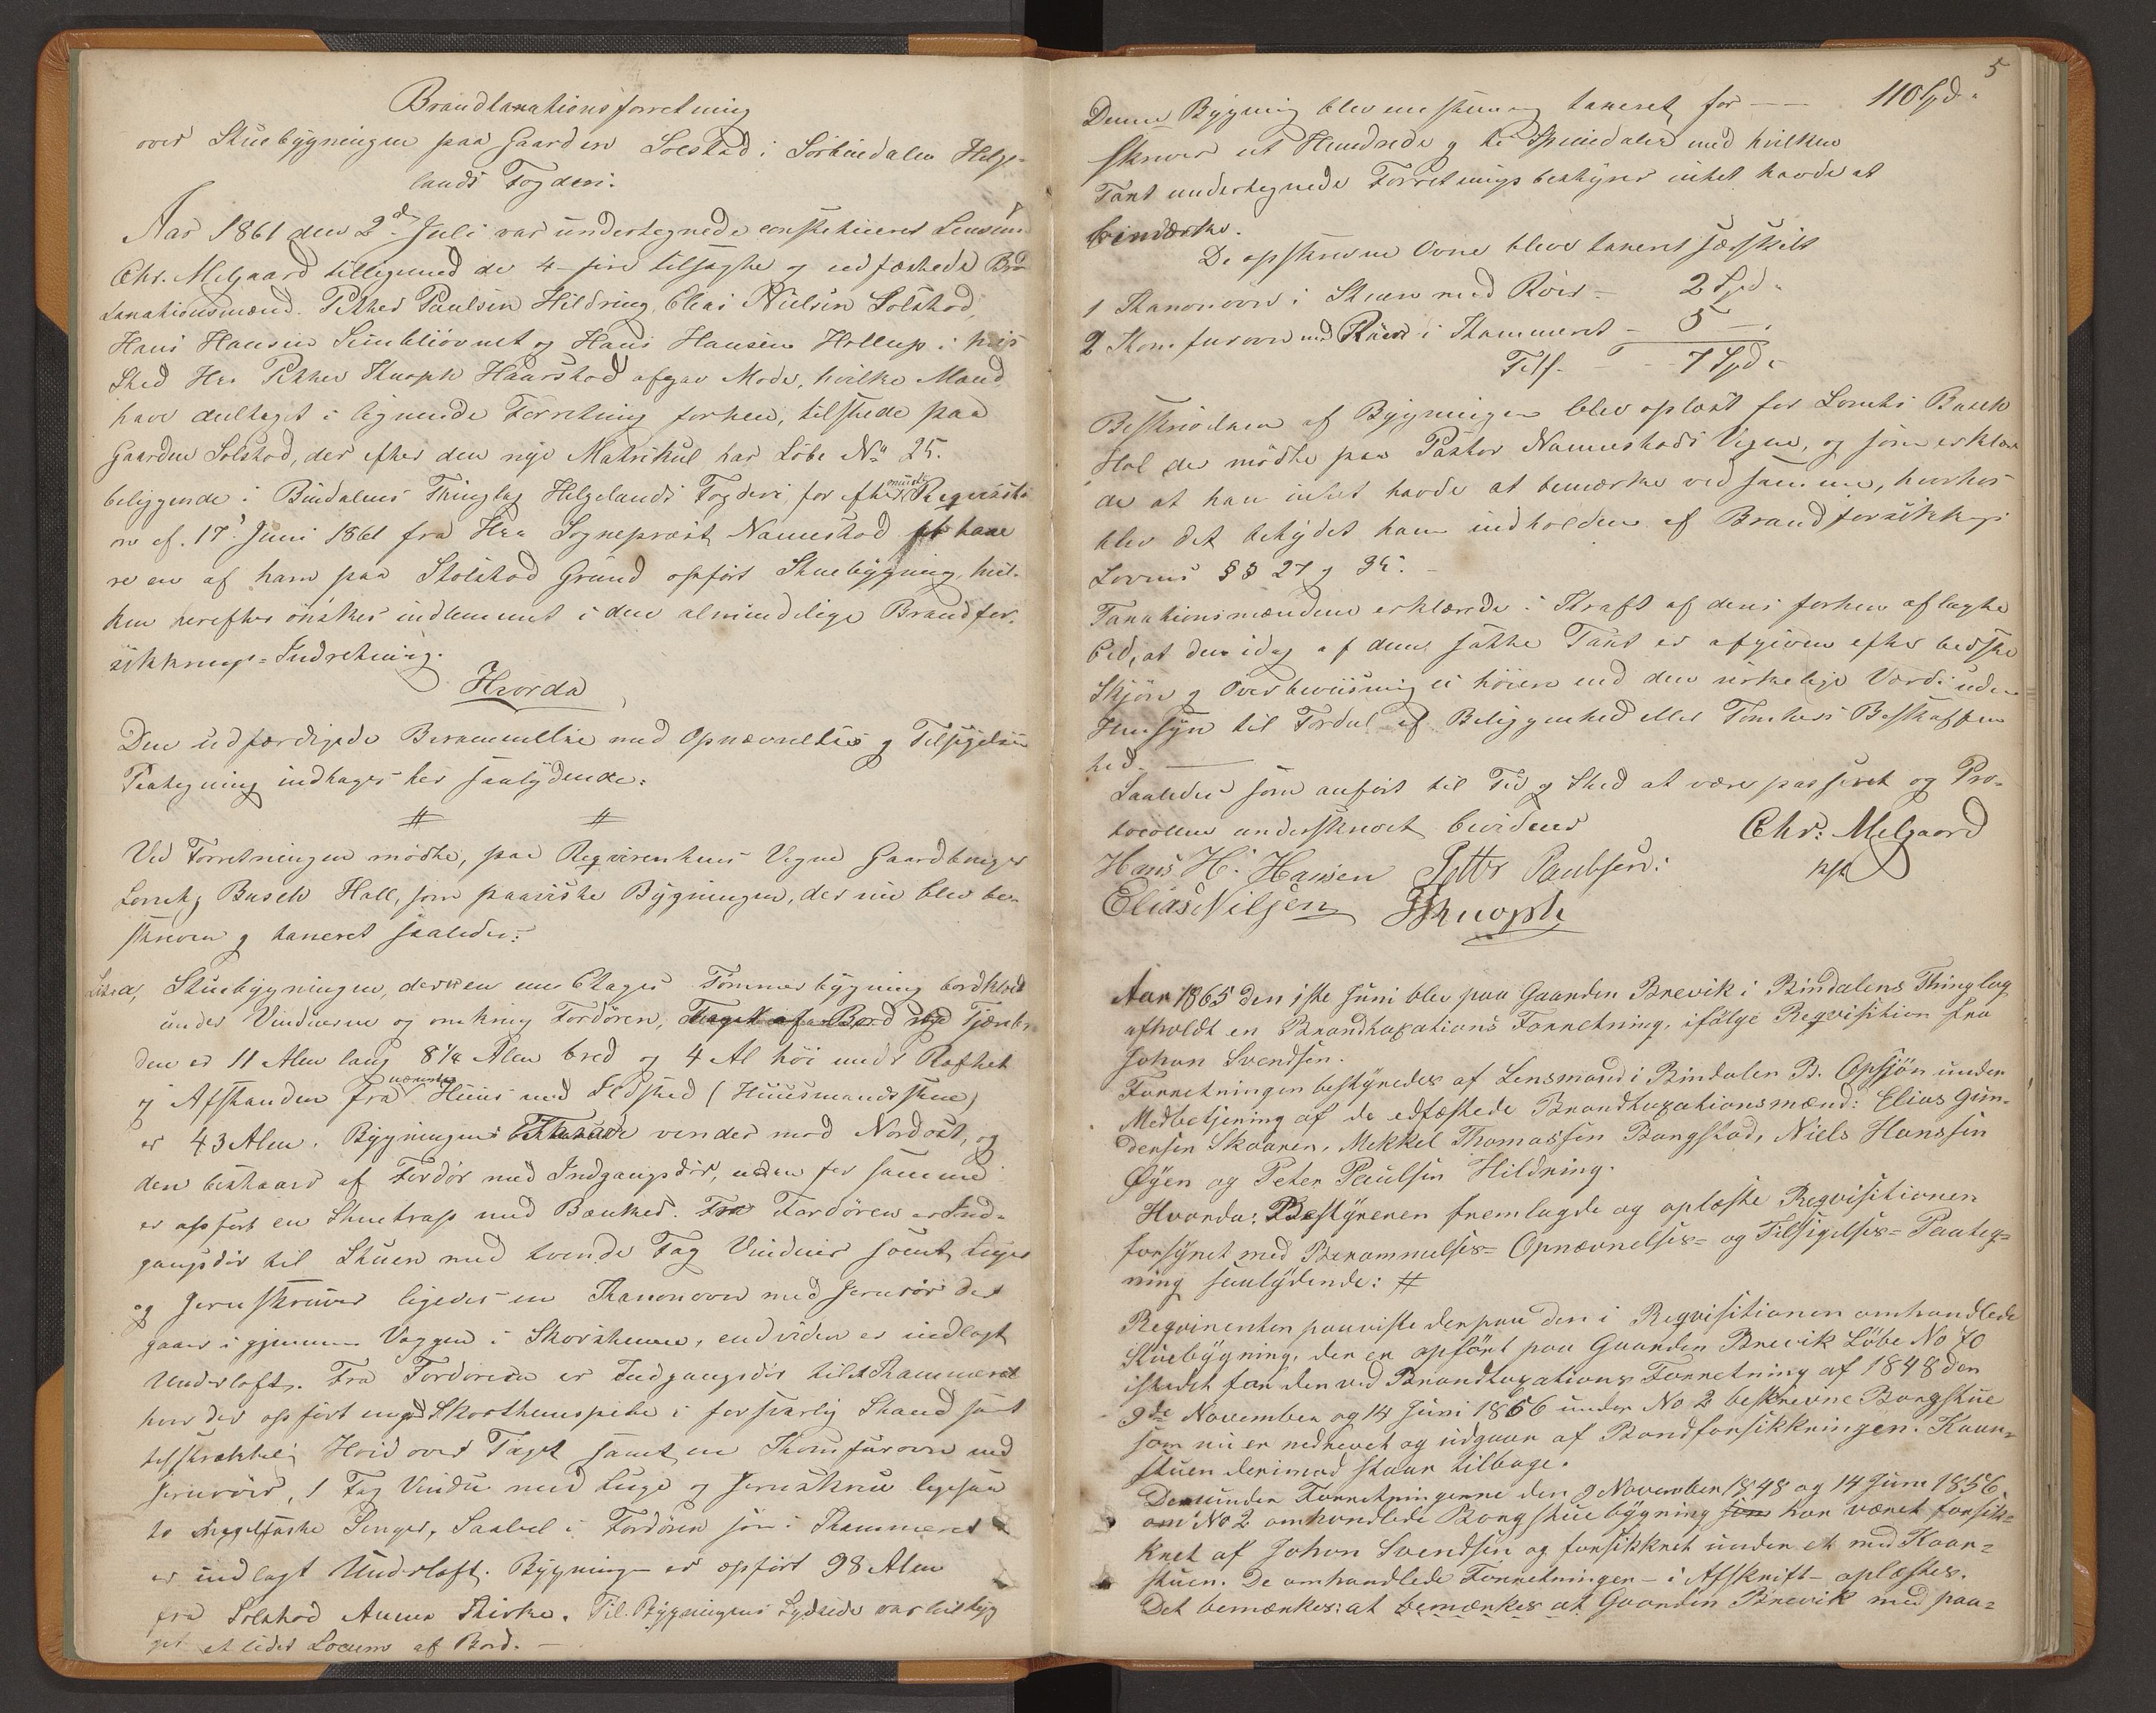 Brandtaxationsforretning
over Stuebygningen paa Gaarden Solstad i Sörbindalen Helge-
lands Fogderi.
Aar 1861 den 2den Juli var undertegnede constitueret Lensm
Chr. Melgaard tilligemed de 4 fire tilsagte og edfæstede Bra
taxationsmænd. Petter Paulsen Hildring, Elias Nielsen Solstad,
Hans Hansen Simbliövnet og Hans Hansen Hollup i hvis
Sted Hr. Petter Knoph Haarstad afgav Møde, hvilke Mænd
have deeltaget i lignende Forretning forhen, tilstede paa
Gaarden Solstad, der efter den nye Matrikul har Löbe No 25.
beliggende i Bindalens Thinglag Helgelands Fogderi for efter mundtlig Reqvisiti
on af 17de Juni 1861 fra Hr. Sognepræst Namestad at taxe
re en af ham paa Solstad Grund opfört Stuebygning, hvil-
ken herefter önskes indlemmet i den almindelige Brandfor-
sikkrings-Indretning.
Hvorda
Den udfærdigede Berammelse med Opnævnelses og Tilsigelses
Paategning indtages her saalydende:
# #
Ved Forretningen mödte, paa Reqvirentens Vegne Gaardbruger
Lorentz Busch Hall, som paaviste Bygningen, der nu blev be-
skreven og taxeret saaledes:
Litra a, Stuebygningen, der er en een Etages Tømmerbygning bordklædt
under Vinduerne og omkring Fordören, Taget af Bord med Tjæreb
den er 11 Alen lang 8 1/4 Alen bred og 4 Al höi under Raftet
og Afstanden fra nærmeste Huus med Ildsted (Huusmandsstue)
er 43 Alen. Bygningens vender mod Nordost, og
den bestaaer af Fordör med Indgangsdör, uden for samme
er opfört en Stuetrap med Bænker. Fra Fordören er Ind-
gangsdör til Stuen med tvende Fag Vinduer samt Luger
og Jernskruer ligedes en Kanonovn med Jernrör der
gaaer i gjennem Væggen i Skorstenen, endvidere er indlagt
Underloft. Fra Fordören er Indgangsdör til et Kammeret
hvor der opfört muret Skorstenspibe i forsvarlig Stand samt
tilstrækkelig Höide over Taget samt en Komfurovn med
Jernrör, 1 Fag Vindu med Luge og Jernskrue ligesaa
to Senger, Saavel i Fordören som i Kammeret
er indlagt Underloft. Bygningen er opfört 98 Alen
fra Solstad Annex Kirke. Til Bygningens Sydside var tilbyg
get et lidet Locum af Bord. —
5
Denne Bygning blev enstemmig taxeret for — — 110 Spd.
skriver et Hundrede og ti Speciedaler med hvilken
Taxt undertegnede Forretningsbestyrer intet havde at
bemærke.
De opskrevne Ovne bleve taxeret særskilt
1 Kanonovn i Stuen med Rör — 2 Spd.
2 Komfurovn med Röer i Kammeret — 5 —
Tils. — — 7 Spd.
Beskrivelsen af Bygningen blev oplæst for Lorents Busch
Hol der mödte paa Pastor Namestads Vegne, og som erklæ
de at han intet havde at bemærke ved samme, hvorhos
blev det betydet ham indholden af Brandforsikkrings
Lovens §§ 27 og 34. —
Taxationsmændene erklærede i Kraft af deres forhen aflagte
Eed, at den idag af dem satte Taxt er afgiven efter bedste
Skjön og Overbeviisning ei höiere end den virkelige Værdi uden
Hensyn til Fordeel af Beliggenhed eller Tomtens Beskaffen
hed. —
Saaledes som anfört til Tid og Sted at være passeret og Pro-
tocollen underskrevet bevidner
Chr: Melgaard
Hans H. Hansen Petter Paulsen:
kst
Elias Nilsen PKnoph
Aar 1865 den 1ste Juni blev paa Gaarden Brevik i Bindalens Thinglag
afholdt en Brandtaxations Forretning, ifölge Reqvisition fra
Johan Svendsen.
Forretningen bestyredes af Lensmand i Bindalen B. Opsjøn under
Medbetjening af de edfæstede Brandtaxationsmænd: Elias Gun-
dersen Skaaren, Mekkel Thomassen Bangstad, Niels Hanssen
Øyen og Peter Paulsen Hildring.
Hvorda: Bestyreren fremlagde og oplæste Reqvisitionen
forsynet med Berammelses- Opnævnelses- og Tilsigelses- Paateg-
ning saalydende: #
Reqvirenten paaviste derpaa den i Reqvisitionen omhandlede
Stuebygning, der er opfört paa Gaarden Brevik Löbe No 70
istedet for den ved Brandtaxations Forretning af 1848 den
9de November og 14 Juni 1856 under No 2 beskrevne Borgstue
som nu er nedrevet og udgaar af Brandforsikkringen. Kaar-
stuen derimod staar tilbage.
Den under Forretningerne den 9 November 1848 og 14 Juni 1856
om No 2 omhandlede Borgstuebygning som har været forsik-
kret af Johan Svendsen og forsikkret under et med Kaar-
stuen. De omhandlede Forretninger - i Afskrift - oplæstes.
Det bemærkes: at bemærkes at Gaarden Brevik med paa-